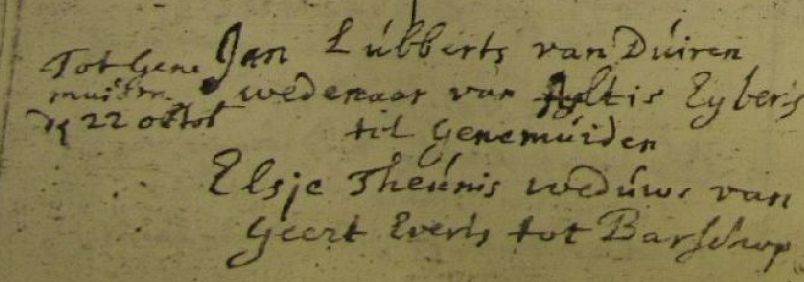 Tot Gene
muiden
den 22 octob
Jan Lúbberts van Dúiren
wedenaar van Eyberts
tot Genemúiden
Elsje Theúnis wedúwe van
Geert Everts tot Barschop